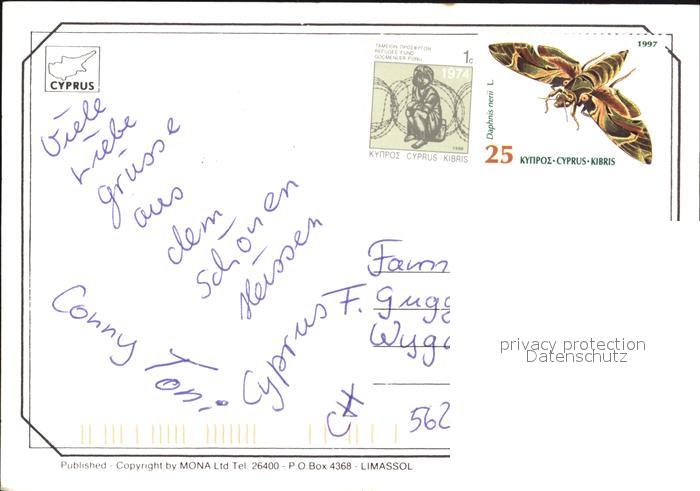 CYPRUS
ΤΑΜΕΙΟΝ ΠΡΟΣΦΥΓΩΝ
REFUGEE FUND
GÖÇMENLER FONU
1c
1974
1998
ΚΥΠΡΟΣ · CYPRUS · KIBRIS
1997
Daphnis nerii L.
25 ΚΥΠΡΟΣ · CYPRUS · KIBRIS
Viele
Liebe
grüsse
aus
dem
schönen
Heissen
Cyprus
Conny
Toni
Fam
F. Gugg
Wyga
CH 562
privacy protection
Datenschutz
Published - Copyright by MONA Ltd Tel. 26400 - P.O.Box 4368 - LIMASSOL